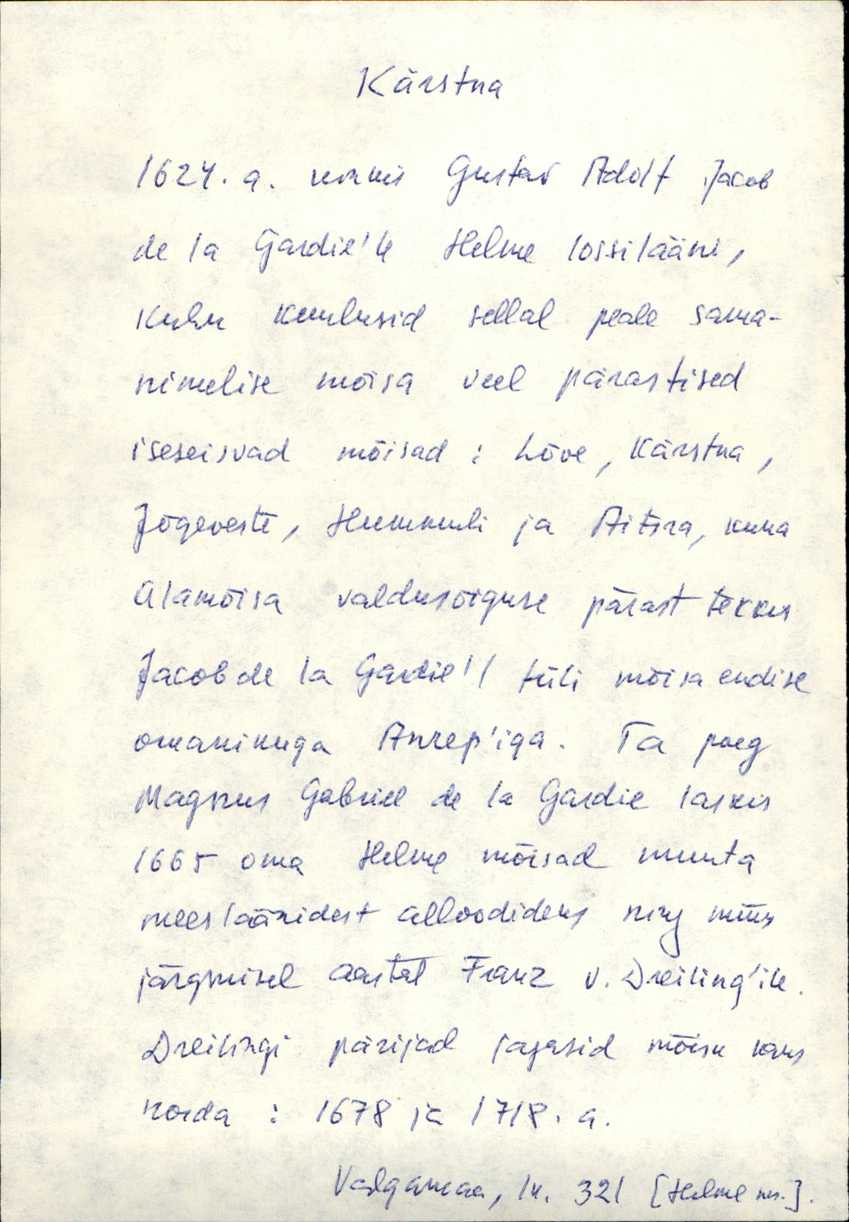 Kärstna
1624. a. annis Gustav Adolf Jacob
de la Gardie'le Helme lossilääni,
kuhu kuulusid sellal peale sama-
nimelise mõisa veel pärastised
iseseisvad mõisad : Lõve, Kärstna,
Jõgeveste, Hummuli ja Aitsra, kuna
Alamõisa valdusõiguse pärast tekkis
Jacob de la Gardie'l tüli mõisa endise
omanikuga Anrep'iga. Ta poeg
Magnus Gabriel de la Gardie laskis
1665 oma Helme mõisad muuta
meesläänidest alloodideks ning müüs
järgmisel aastal Franz v. Dreiling'ile.
Dreilingi pärijad jagasid mõisu kaks
korda : 1678 ja 1718. a.
Valgamaa, lk. 321 [Helme kh.].